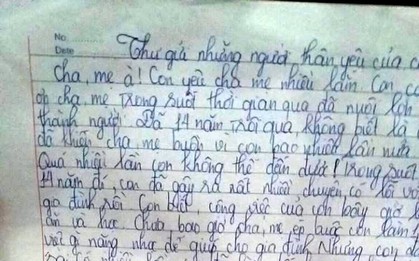 No.
Date
Thư gửi những người thân yêu của c
Cha, mẹ à! Con yêu cha mẹ nhiều lắm. Con c
ơn cha, mẹ trong suốt thời gian qua đã nuôi lớn
thành người. Đã 14 năm trôi qua không biết là
đã khiến cha mẹ buồn vì con bao nhiêu lần nữa
Quá nhiều lần con không thể đếm được! Trong suốt
14 năm đó, con đã gây ra rất nhiều chuyện có lỗi với
gia đình rồi. Con biết, công việc của con bây giờ
ăn và học. Chưa bao giờ cha, mẹ ép buộc con làm
gì nặng như để giúp cho gia đình. Nhưng con